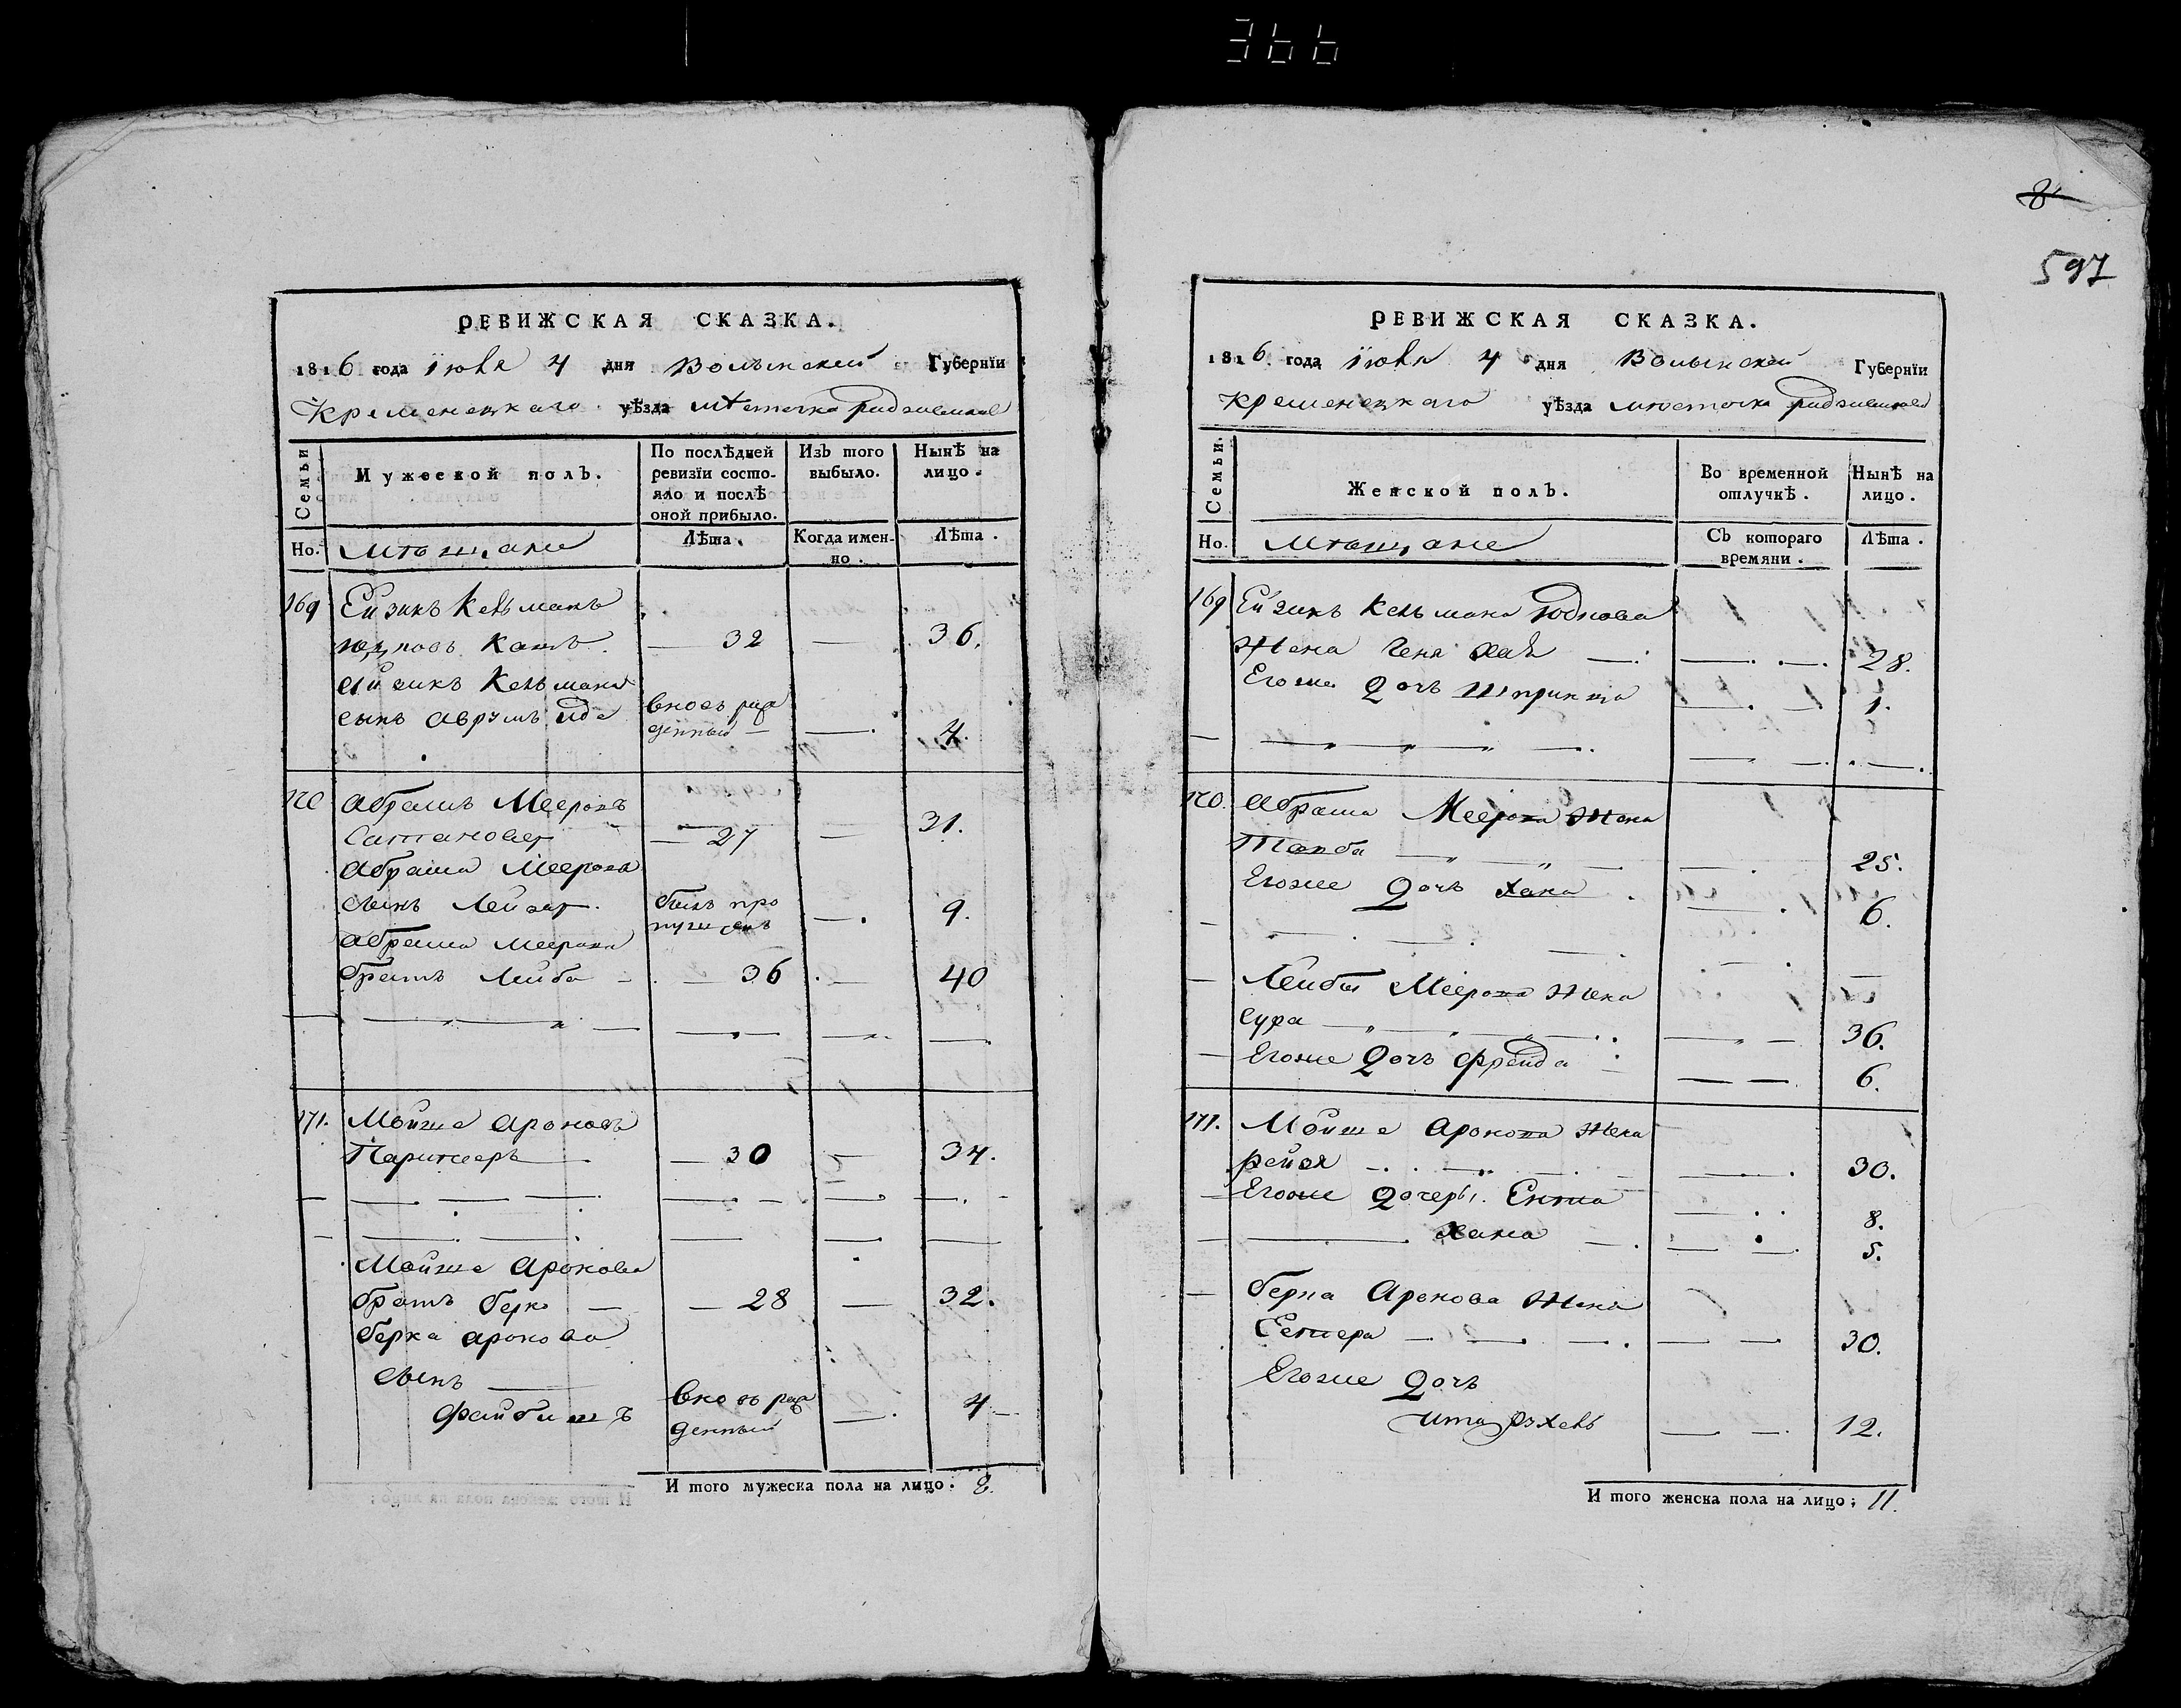 366
8
597
РЕВИЖСКАЯ СКАЗКА.
1816 года июня 4 дня Волынской Губернїи
Кременецкаго уѣзда мѣстечка
Семьи
Мужеской полъ.
По послѣдней ревизїи состояло и послѣ оной прибыло.
Изъ того выбыло.
Нынѣ на лицо.
Но. мѣщане
Лѣта.
Когда именно.
Лѣта.
169 Ейзикъ Кельманъ
— 32 — 36.
Айзикъ Кельмана
сынъ Аврумъ вновь рож
денный — — 4.
170 Абрамъ Мееровъ
Сатановер — 27 — 31.
Абрама Меерова
сынъ Лейзер былъ про
пущенъ — 9.
Абрама Меерова
братъ Лейба — 36 — 40
171. Мойше Ароновъ
— 30 — 34.
Мойше Аронова
братъ Берко — 28 — 32.
Берка Аронова
сынъ
Файбишъ вновь рож
денный — 4
И того мужеска пола на лицо: 8.
РЕВИЖСКАЯ СКАЗКА.
1816 года июня 4 дня Волынской Губернїи
Кременецкаго уѣзда мѣстечка
Семьи.
Женской полъ.
Во временной отлучкѣ.
Нынѣ на лицо.
Но. мѣщане
Съ котораго времяни.
Лѣта.
169 Ейзикъ Кельмана Юдкова
жена Хая — — 28.
Егоже дочь Шпринца — 1.
170. Абрама Меерова жена
Тауба — — 25.
Егоже дочь Хана — 6.
Лейбы Меерова жена
Сура — — 36.
Егоже дочь Фрейда — 6.
171. Мойше Аронова жена
Рейзя — — 30.
Егоже дочеры Ента — 8.
Хана — 5.
Берка Аронова жена
Естера — — 30.
Егоже дочь
Ита — 12.
И того женска пола на лицо: 11.